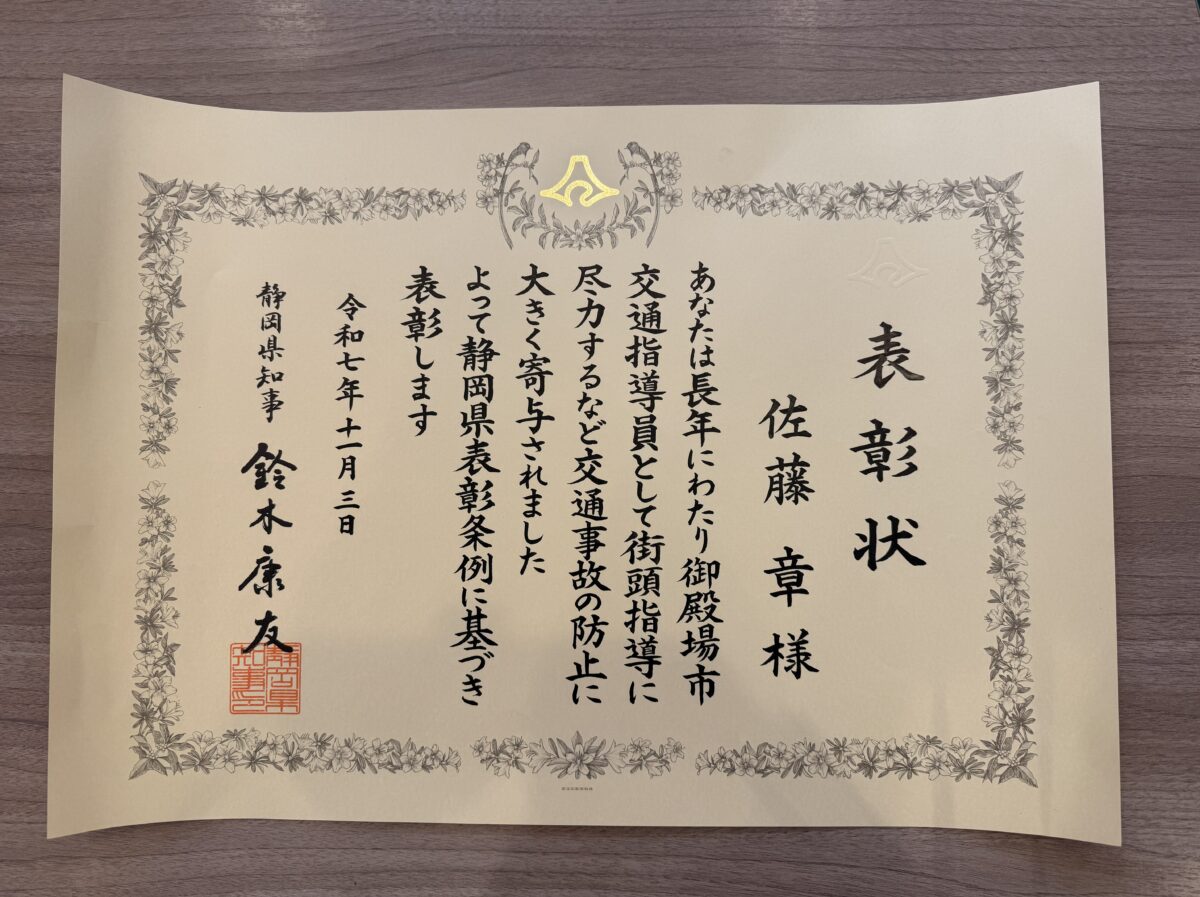 表彰状
佐藤章様
あなたは長年にわたり御殿場市
交通指導員として街頭指導に
尽力するなど交通事故の防止に
大きく寄与されました
よって静岡県表彰条例に基づき
表彰します
令和七年十一月三日
静岡県知事 鈴木康友
静岡県知事印